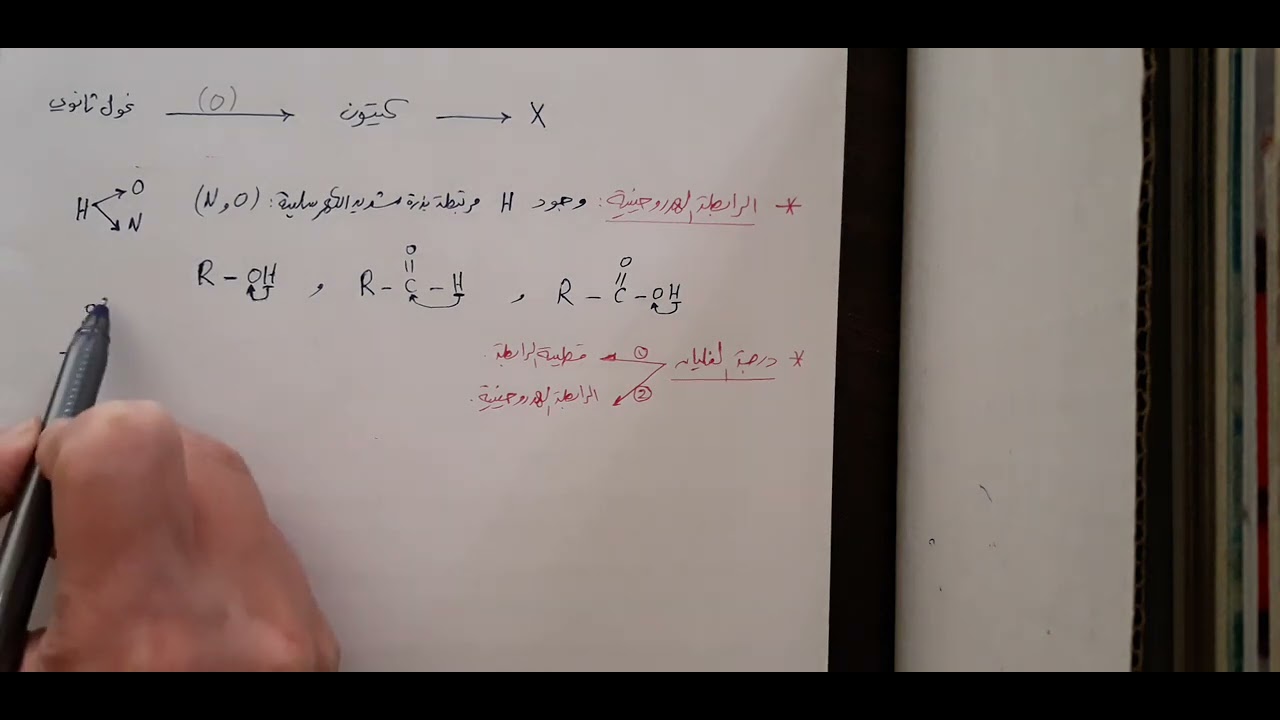 غول ثانوي ⟶(O) كيتون ⟶ X
* الرابطة الهدروجينية: وجود H مرتبطة بذرة شديدة الكهرسلبية: (O و N) H O N
R - OH , R - C(=O) - H , R - C(=O) - OH
* درجة الغليان ① قطبية الرابطة.
② الرابطة الهدروجينية.